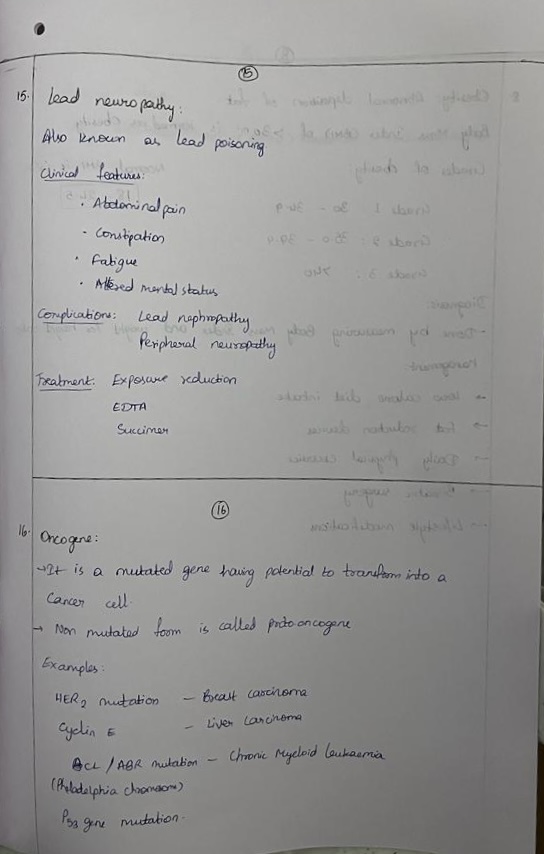 15
15. Lead neuropathy:
Also known as lead poisoning
Clinical features:
· Abdominal pain
- Constipation
· Fatigue
· Altered mental status
Complications: Lead nephropathy
Peripheral neuropathy
Treatment: Exposure reduction
EDTA
Succimer
16
16. Oncogene:
→ It is a mutated gene having potential to transform into a
Cancer cell.
→ Non mutated form is called protooncogene
Examples:
HER2 mutation - Breast carcinoma
Cyclin E - Liver carcinoma
BCL / ABR mutation - Chronic Myeloid Leukaemia
(Philadelphia chromosome)
P53 gene mutation.